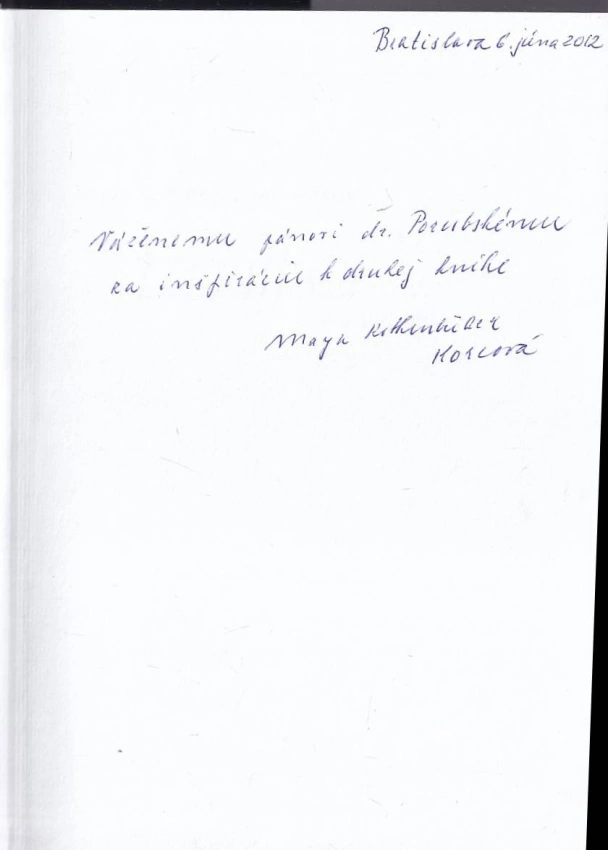 Bratislava 6. júna 2012
Váženemu pánovi dr. Porubskému
za inšpiráciu k druhej knihe
Maya